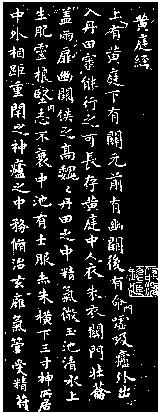 黄庭經
上有黄庭下有關元前有幽闕後有命門噓吸廬外出
入丹田審能行之可長存黄庭中人衣朱衣關門壯蘥
蓋兩扉幽闕俠之高巍〻丹田之中精氣微玉池清水上
生肥靈根堅志不衰中池有士服赤朱橫下三寸神所居
中外相距重閉之神廬之中務脩治玄㢕氣管受精符